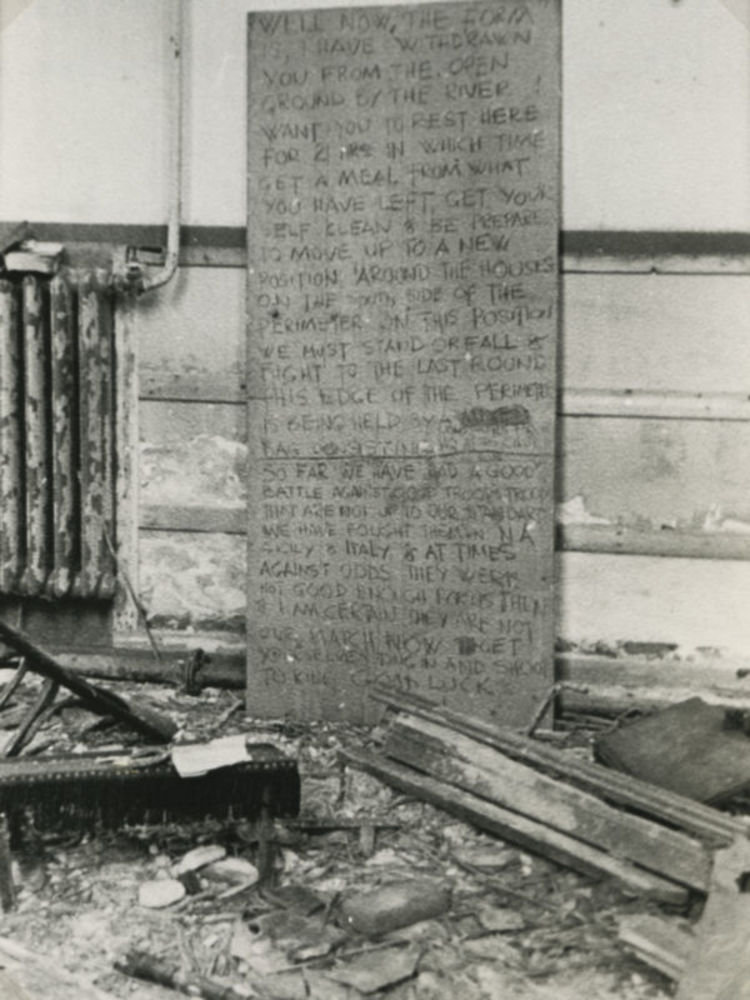 WELL NOW, THE FORM
IS, I HAVE WITHDRAWN
YOU FROM THE OPEN
GROUND BY THE RIVER. I
WANT YOU TO REST HERE
FOR 2 HRS IN WHICH TIME
GET A MEAL FROM WHAT
YOU HAVE LEFT, GET YOUR
SELF CLEAN & BE PREPARE
TO MOVE UP TO A NEW
POSITION AROUND THE HOUSES
ON THE SOUTH SIDE OF THE
PERIMETER. IN THIS POSITION
WE MUST STAND OR FALL &
FIGHT TO THE LAST ROUND
THIS EDGE OF THE PERIMETER
IS BEING HELD BY A
SO FAR WE HAVE HAD A GOOD
BATTLE AGAINST GOOD TROOPS TROOPS
THAT ARE NOT UP TO OUR STANDARD
WE HAVE FOUGHT THEM IN N A
SICILY & ITALY & AT TIMES
AGAINST ODDS THEY WERE
NOT GOOD ENOUGH FOR US THEN
& I AM CERTAIN THEY ARE NOT
OUR MARCH NOW GET
YOURSELVES DUG IN AND SHOOT
TO KILL GOOD LUCK